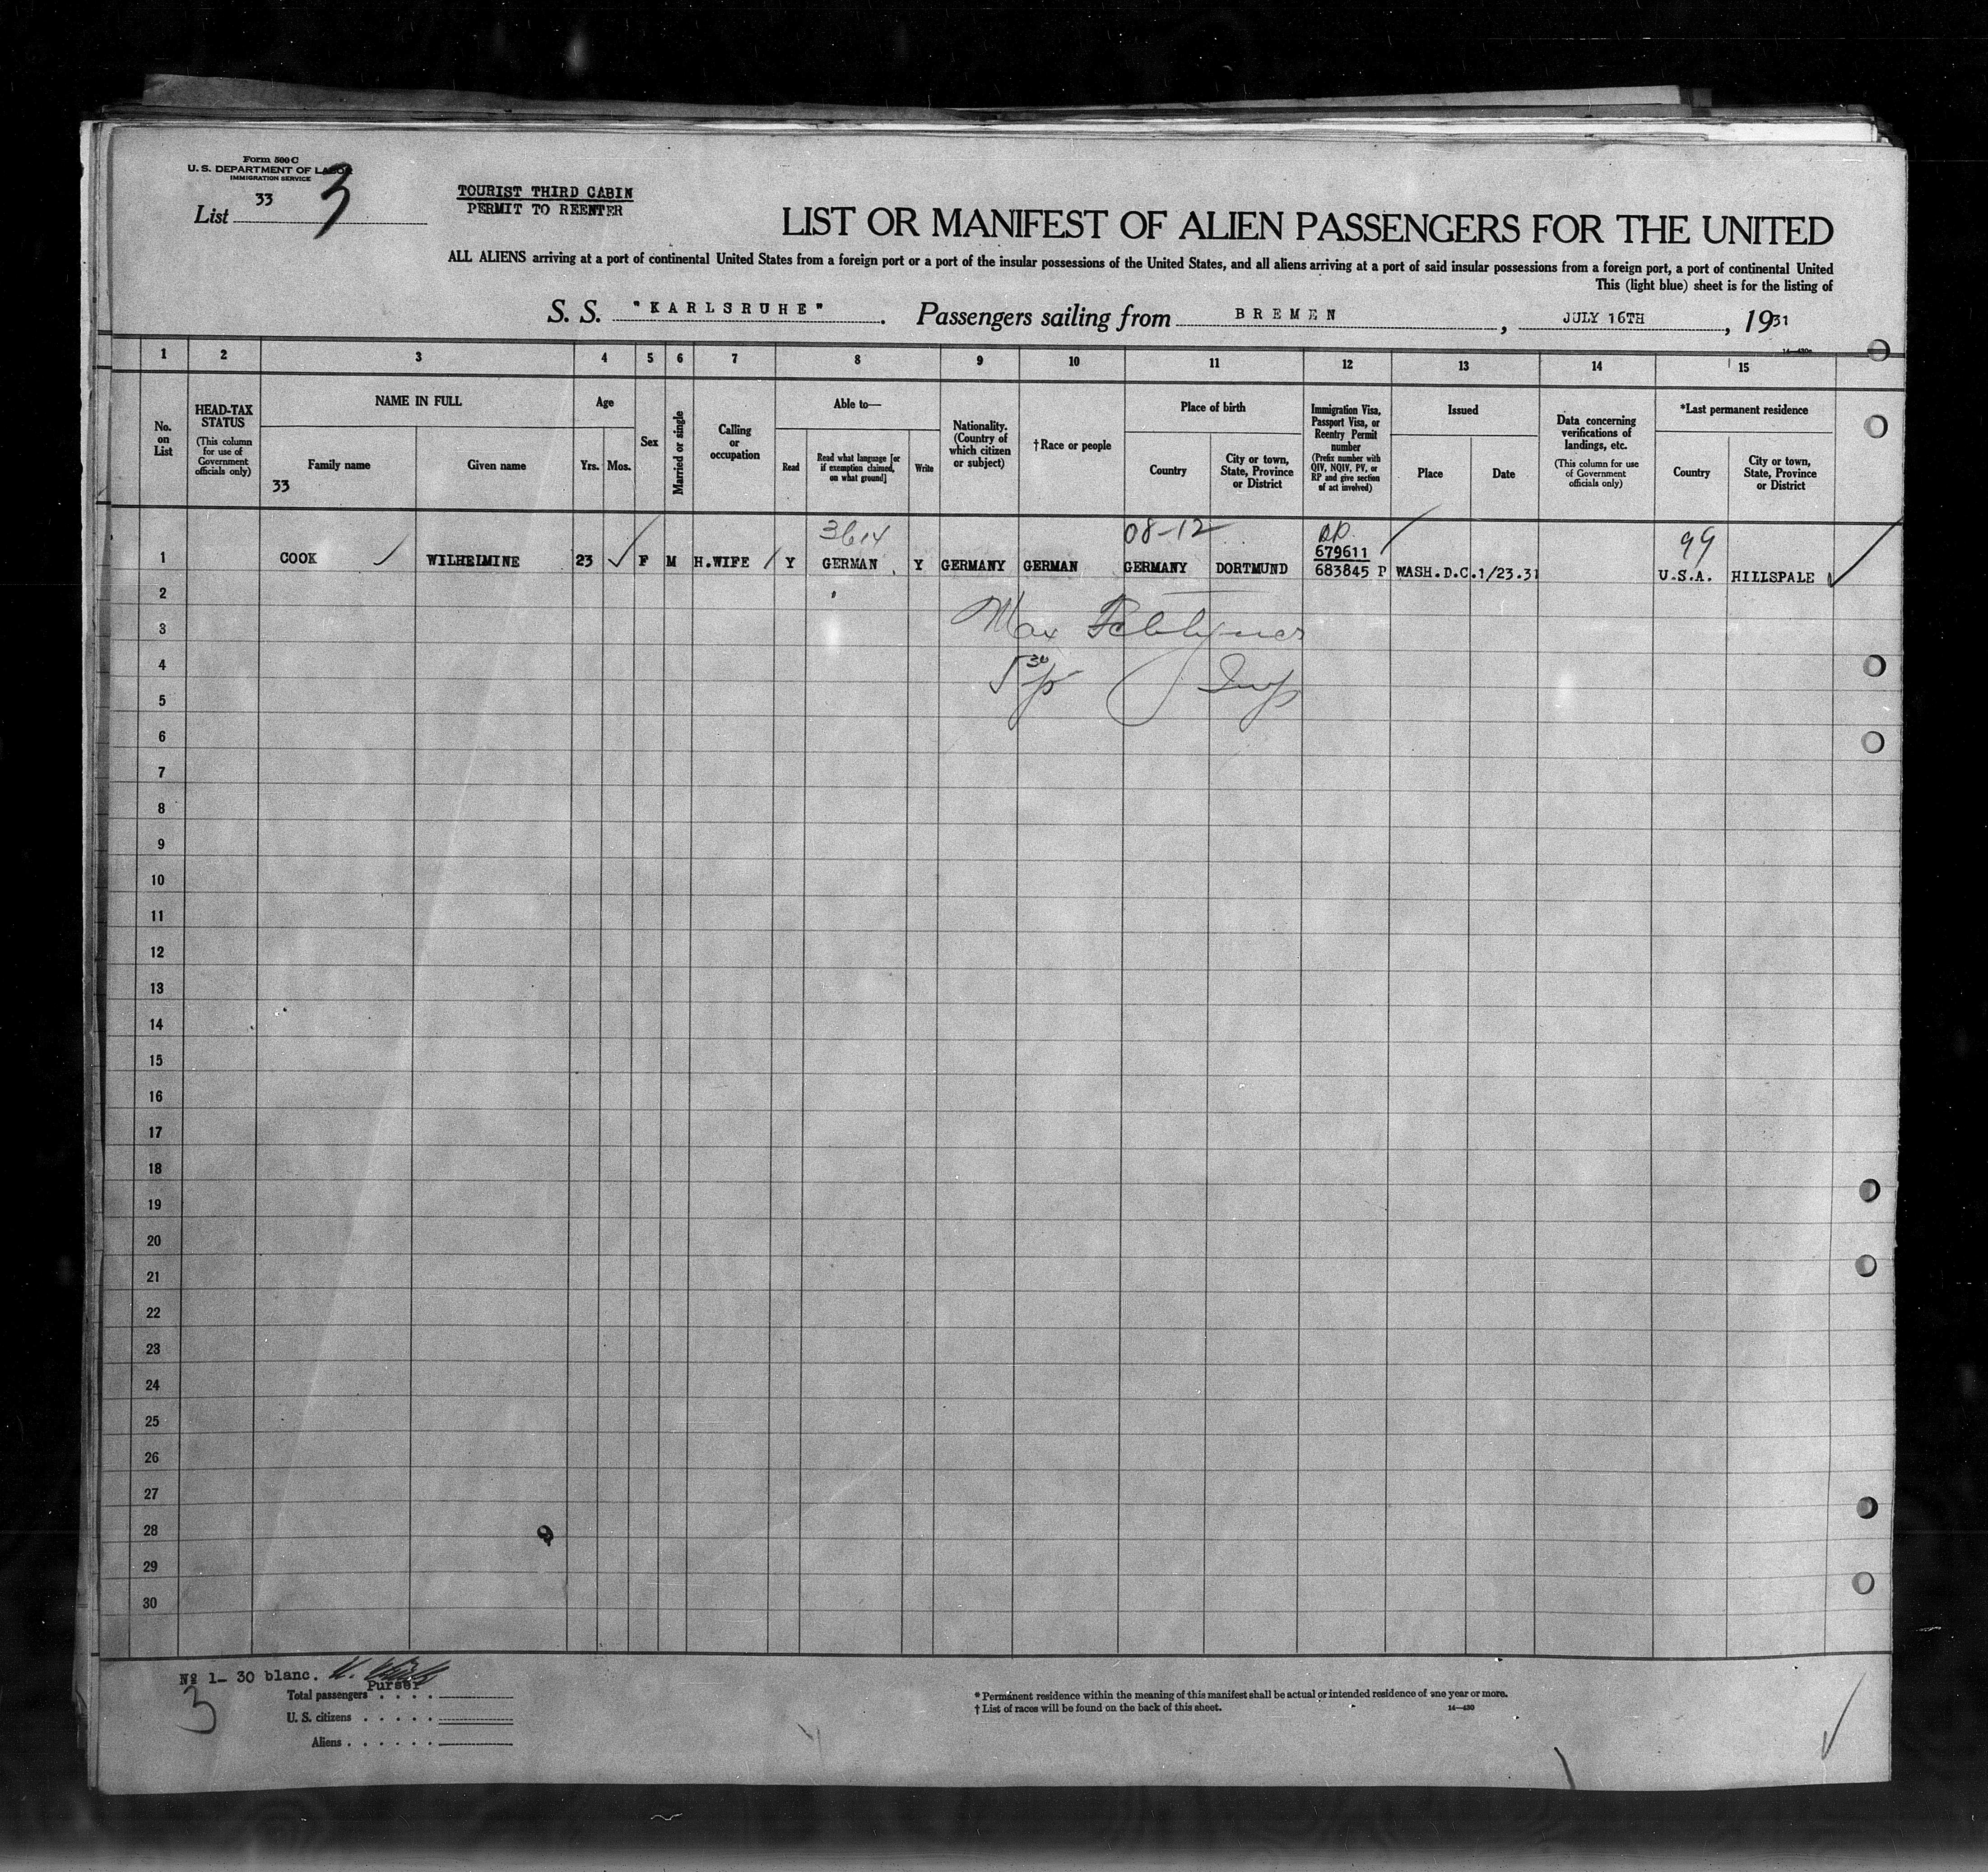 Form 500 C
U. S. DEPARTMENT OF LABOR
IMMIGRATION SERVICE
List 33 3
TOURIST THIRD CABIN
PERMIT TO REENTER
LIST OR MANIFEST OF ALIEN PASSENGERS FOR THE UNITED
ALL ALIENS arriving at a port of continental United States from a foreign port or a port of the insular possessions of the United States, and all aliens arriving at a port of said insular possessions from a foreign port, a port of continental United
This (light blue) sheet is for the listing of
S. S. "KARLSRUHE". Passengers sailing from BREMEN, JULY 16TH, 1931
14—430
1 2 3 4 5 6 7 8 9 10 11 12 13 14 15
No. on List
HEAD-TAX STATUS
(This column for use of Government officials only)
NAME IN FULL
Family name
33
Given name
Age
Yrs. Mos.
Sex
Married or single
Calling or occupation
Able to—
Read
Read what language [or if exemption claimed, on what ground]
Write
Nationality. (Country of which citizen or subject)
†Race or people
Place of birth
Country
City or town, State, Province or District
Immigration Visa, Passport Visa, or Reentry Permit number
(Prefix number with QIV, NQIV, PV, or RP and give section of act involved)
Issued
Place
Date
Data concerning verifications of landings, etc.
(This column for use of Government officials only)
*Last permanent residence
Country
City or town, State, Province or District
3614 08-12 99
679611
1 COOK WILHELMINE 23 F M H.WIFE Y GERMAN Y GERMANY GERMAN GERMANY DORTMUND 683845 P WASH.D.C. 1/23.31 U.S.A. HILLSPALE
2
3 Max
4
5
6
7
8
9
10
11
12
13
14
15
16
17
18
19
20
21
22
23
24
25
26
27
28
29
30
№ 1- 30 blanc.
Purser
3
Total passengers
U. S. citizens
Aliens
* Permanent residence within the meaning of this manifest shall be actual or intended residence of one year or more.
† List of races will be found on the back of this sheet.
14—430